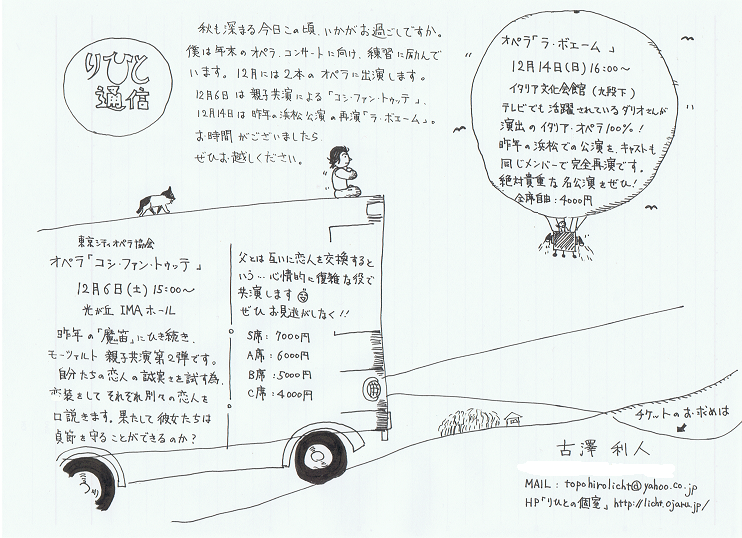 りひと
通信
秋も深まる今日この頃、いかがお過ごしですか。
僕は年末のオペラ、コンサートに向け、練習に励んで
います。12月には2本のオペラに出演します。
12月6日は親子共演による「コシ・ファン・トゥッテ」、
12月14日は昨年の浜松公演の再演「ラ・ボエーム」。
お時間がございましたら、
ぜひお越しください。
オペラ「ラ・ボエーム」
12月14日(日)16:00～
イタリア文化会館(九段下)
テレビでも活躍されているダリオさんが
演出のイタリア・オペラ100%!
昨年の浜松での公演を、キャストも
同じメンバーで完全再演です。
絶対貴重な名公演をぜひ!
全席自由:4000円
東京シティオペラ協会
オペラ「コシ・ファン・トゥッテ」
12月6日(土)15:00～
光が丘 IMAホール
昨年の「魔笛」にひき続き、
モーツァルト 親子共演第2弾です。
自分たちの恋人の誠実さを試す為、
変装をしてそれぞれ別々の恋人を
口説きます。果たして彼女たちは
貞節を守ることができるのか?
父とは互いに恋人を交換すると
いう…心情的に復雑な役で
共演します
ぜひお見逃がしなく!!
S席:7000円
A席:6000円
B席:5000円
C席:4000円
チケットのお求めは
古澤 利人
MAIL : topohirolicht@yahoo.co.jp
HP「りひとの個室」 http://licht.ojaru.jp/